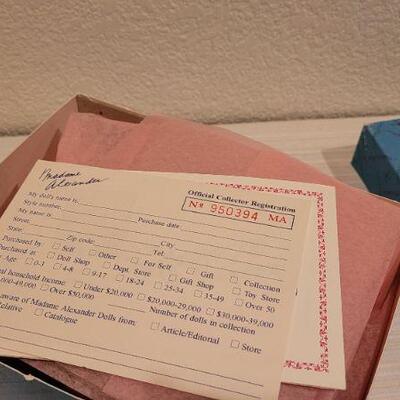 Madame
Alexander
Official Collector Registration
Nº 950394 MA
My doll's name is
Style number
My name is
Purchase date
Street
City
State
Zip code
Tel.
Purchased by ☐ Self ☐ Other ☐ For Self ☐ Gift ☐ Collection
Purchased at ☐ Doll Shop ☐ Dept. Store ☐ Gift Shop ☐ Toy Store
Age: ☐ 0-1 ☐ 4-8 ☐ 9-17 ☐ 18-24 ☐ 25-34 ☐ 35-49 ☐ Over 50
household income ☐ Under $20,000 ☐ $20,000-29,000 ☐ $30,000-39,000
☐ Over $50,000
Number of dolls in collection
aware of Madame Alexander Dolls from:
☐ Catalogue ☐ Article/Editorial ☐ Store